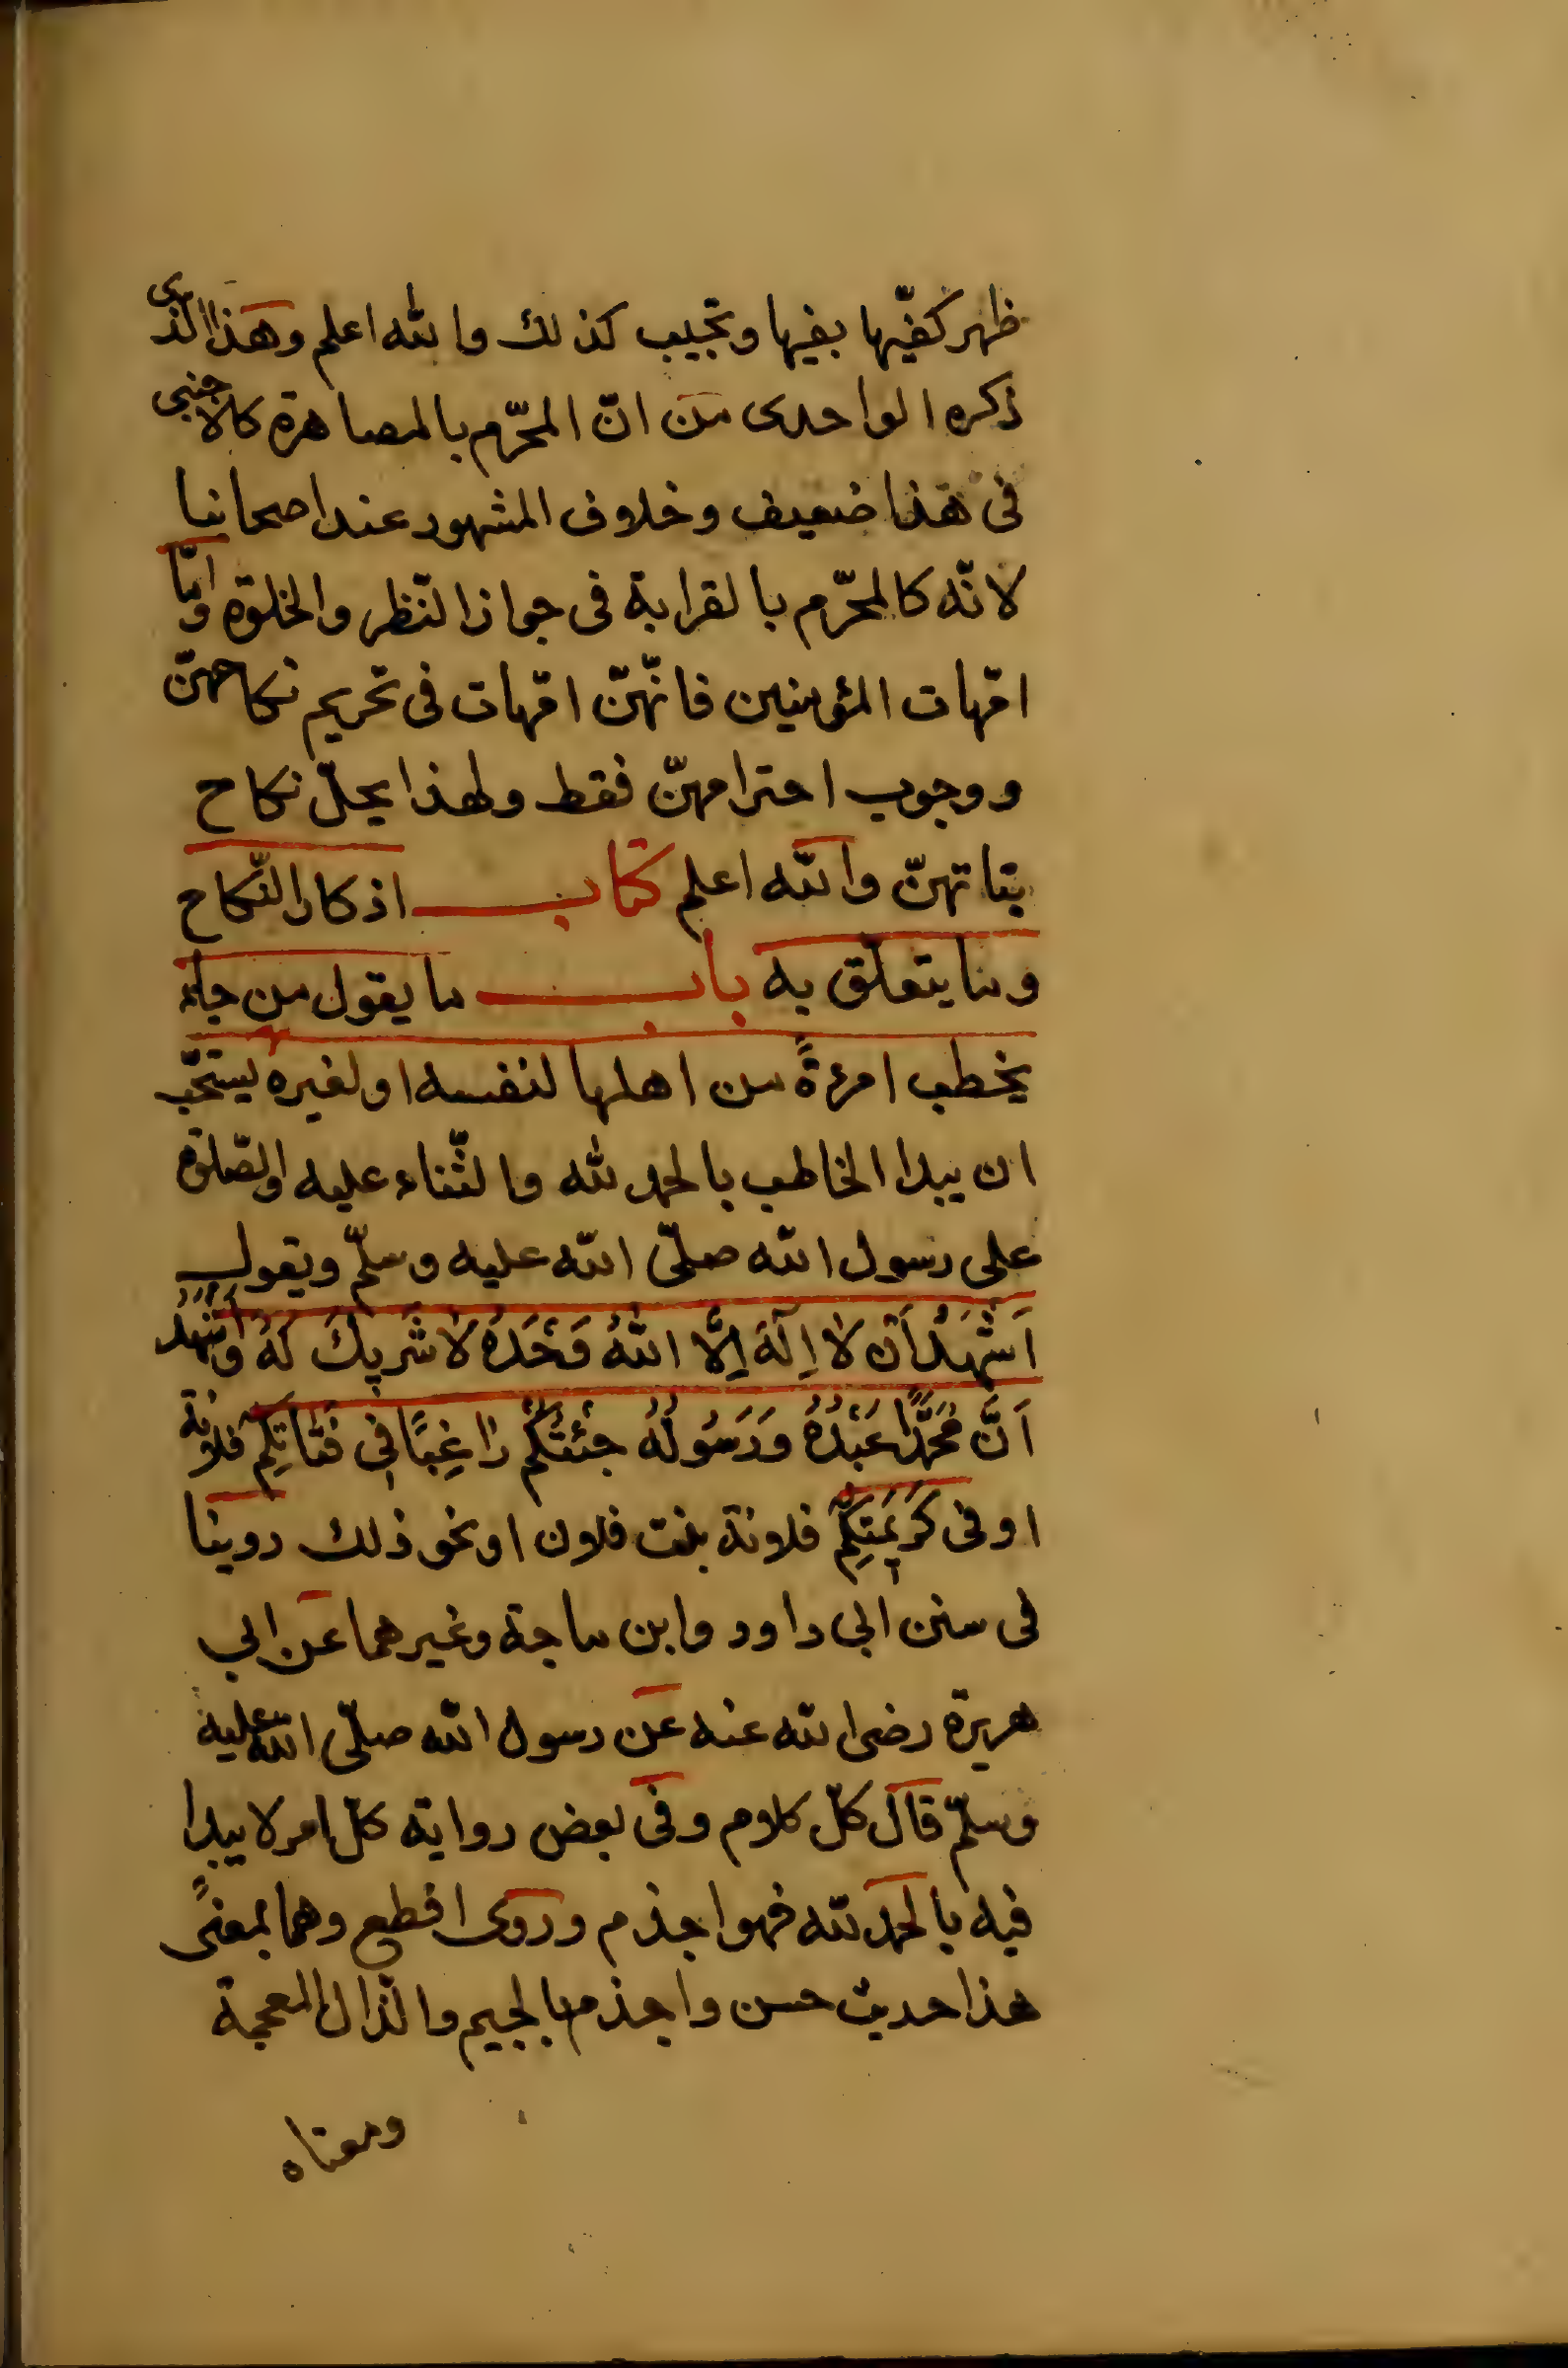 ظهر كفّيها بفيها وتجيب كذلك والله اعلم وهذا الذى
ذكره الواحدى من انّ المحرّم بالمصاهرة كالاجنبى
فى هذا ضعيف وخلاف المشهور عند اصحابنا
لانّه كالمحرّم بالقرابة فى جواز النّظر والخلوة وامّا
امّهات المؤمنين فانّهنّ امّهات فى تحريم نكاحهنّ
ووجوب احترامهنّ فقط ولهذا يحلّ نكاح
بناتهنّ والله اعلم كتاب اذكار النّكاح
وما يتعلّق به باب ما يقول من جاء
يخطب امرءةً من اهلها لنفسه او لغيره يستحّب
ان يبدا الخاطب بالحمد لله والثّناء عليه والصّلوة
على رسول الله صلّى الله عليه وسلّم ويقول
اَشْهَدُ اَنْ لا اِلَهَ اِلَّا اللهُ وَحْدَهُ لَا شَرِيكَ لَهُ وَاَشْهَدُ
اَنَّ مُحَمَّدًا عَبْدُهُ وَرَسُولُهُ جِئْتُكُمْ رَاغِبًا فِى فَتَاتِكُمْ فلانة
او فى كَرِيمَتِكُمْ فلانة بنت فلان او نحو ذلك روينا
فى سنن ابى داود وابن ماجة وغيرهما عن ابى
هريرة رضى الله عنه عن رسول الله صلّى الله عليه
وسلّم قال كلّ كلام وفى بعض رواية كلّ امر لا يبدا
فيه بالحمد لله فهو اجذم وروى اقطع وهما بمعنًى
هذا حديث حسن واجذم بالجيم والذّال المعجمة
ومعناه